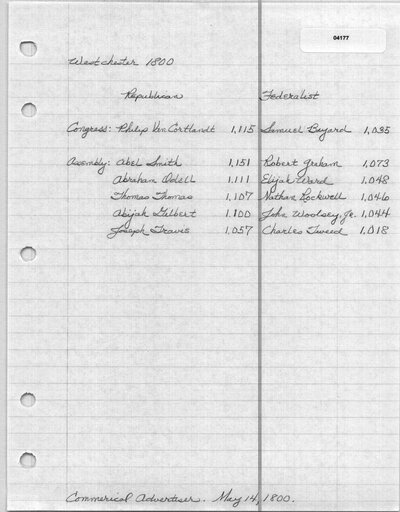 04177
Westchester 1800
Republican Federalist
Congress: Philip Van Cortlandt 1,115 Samuel Bayard 1,035
Assembly: Abel Smith 1,151 Robert Graham 1,073
Abraham Odell 1,111 Elijah Ward 1,048
Thomas Thomas 1,107 Nathan Rockwell 1,046
Abijah Gilbert 1,100 John Woolsey, Jr. 1,044
Joseph Travis 1,057 Charles Tweed 1,018
Commerical Advertiser. May 14, 1800.